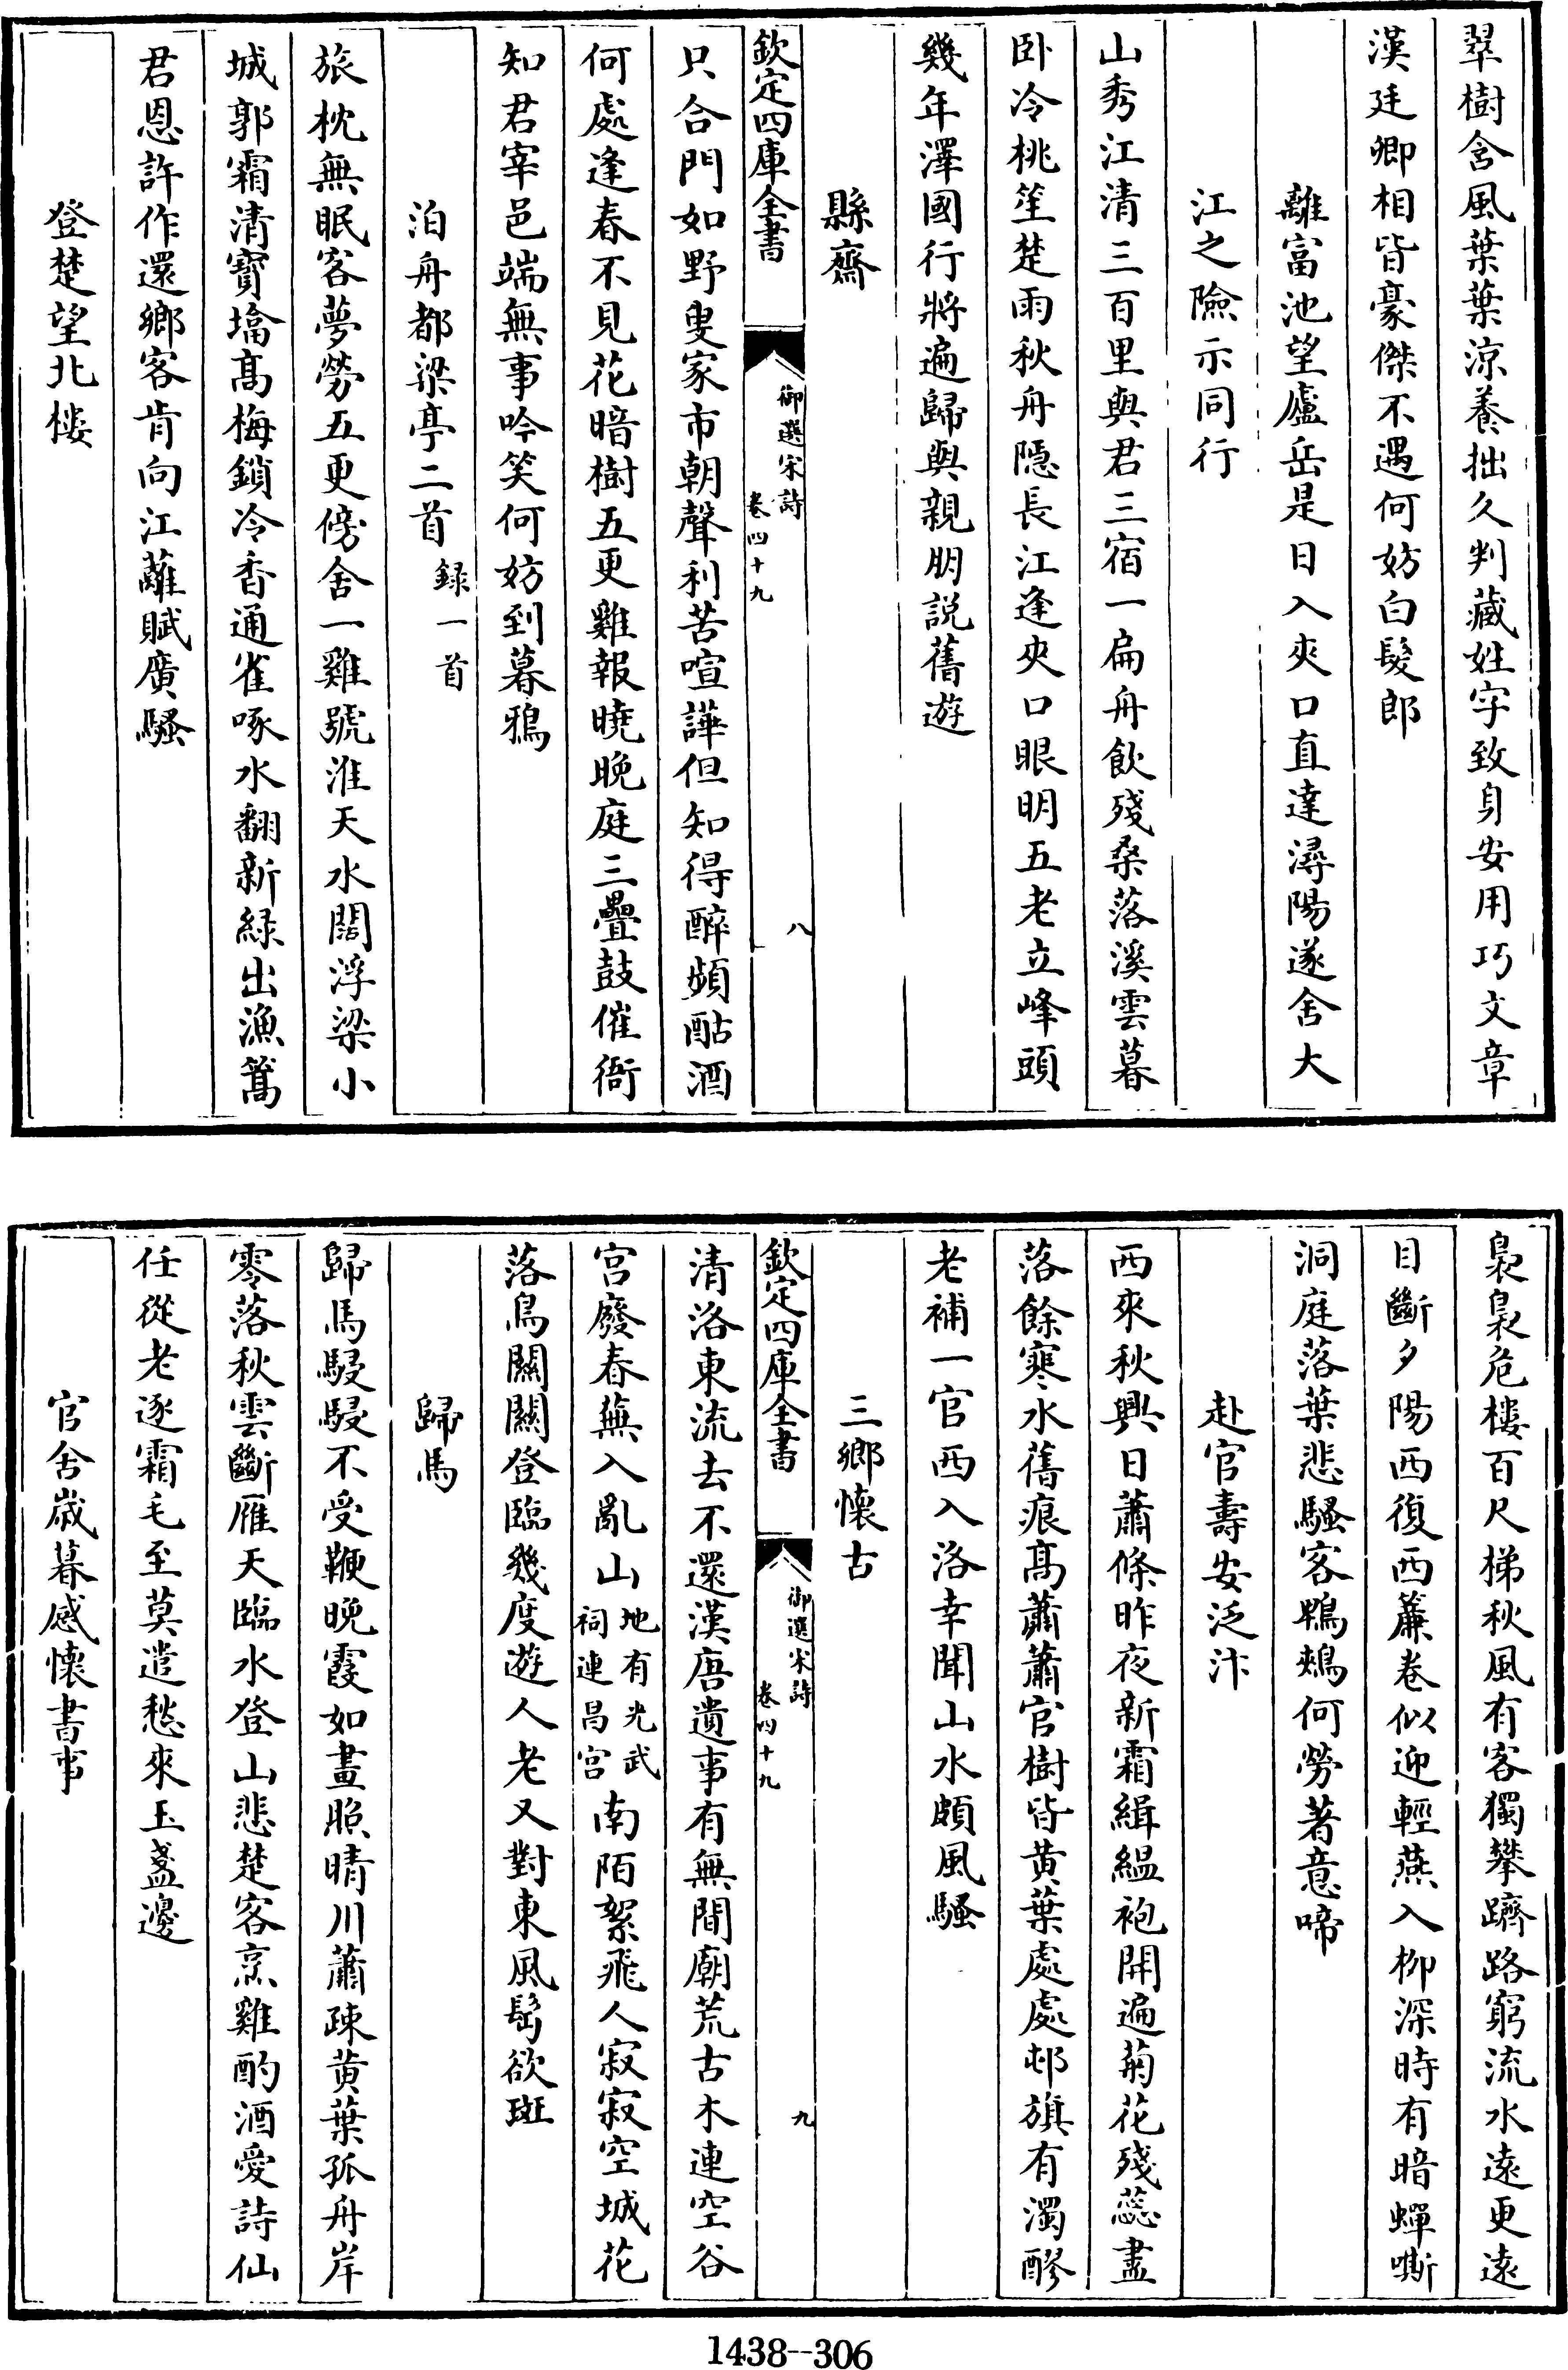 翠樹含風葉葉涼養拙久判藏姓字致身安用巧文章
漢廷卿相皆豪傑不遇何妨白髮郎
離富池望廬岳是日入夾口直達潯陽遂舍大
江之險示同行
山秀江清三百里與君三宿一扁舟飲殘桑落溪雲暮
卧冷桃笙楚雨秋舟隱長江逢夾口眼明五老立峰頭
幾年澤國行將遍歸與親朋説舊遊
縣齋
欽定四庫全書
御選宋詩
卷四十九
八
只合門如野叟家市朝聲利苦喧譁但知得醉頻酤酒
何處逢春不見花暗樹五更雞報曉晚庭三疊鼓催衙
知君宰邑端無事吟笑何妨到暮鴉
泊舟都梁亭二首録一首
旅枕無眠客夢勞五更傍舍一雞號淮天水闊浮梁小
城郭霜清寳墖高梅鎖冷香通雀啄水翻新緑出漁篙
君恩許作還鄉客肯向江蘺賦廣騷
登楚望北樓
裊裊危樓百尺梯秋風有客獨攀躋路窮流水遠更遠
目斷夕陽西復西簾卷似迎輕燕入柳深時有暗蟬嘶
洞庭落葉悲騷客鵯鵊何勞著意啼
赴官壽安泛汴
西來秋興日蕭條昨夜新霜緝緼袍開遍菊花殘蕊盡
落餘寒水舊痕高蕭蕭官樹皆黄葉處處邨旗有濁醪
老補一官西入洛幸聞山水頗風騷
三鄉懷古
欽定四庫全書
御選宋詩
卷四十九
九
清洛東流去不還漢唐遺事有無間廟荒古木連空谷
宫廢春蕪入亂山地有光武祠連昌宫南陌絮飛人寂寂空城花
落鳥關關登臨幾度遊人老又對東風髩欲斑
歸馬
歸馬駸駸不受鞭晚霞如畫照晴川蕭疎黄葉孤舟岸
零落秋雲斷雁天臨水登山悲楚客烹雞酌酒愛詩仙
任從老逐霜毛至莫遣愁來玉盞邊
官舍歲暮感懷書事
1438--306